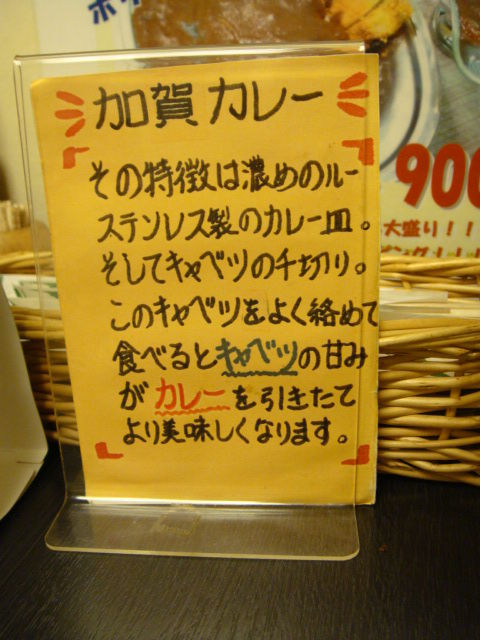 加賀カレー
その特徴は濃めのルー
ステンレス製のカレー皿。
そしてキャベツの千切り。
このキャベツをよく絡めて
食べるとキャベツの甘み
がカレーを引きたて
より美味しくなります。
900
大盛り！！